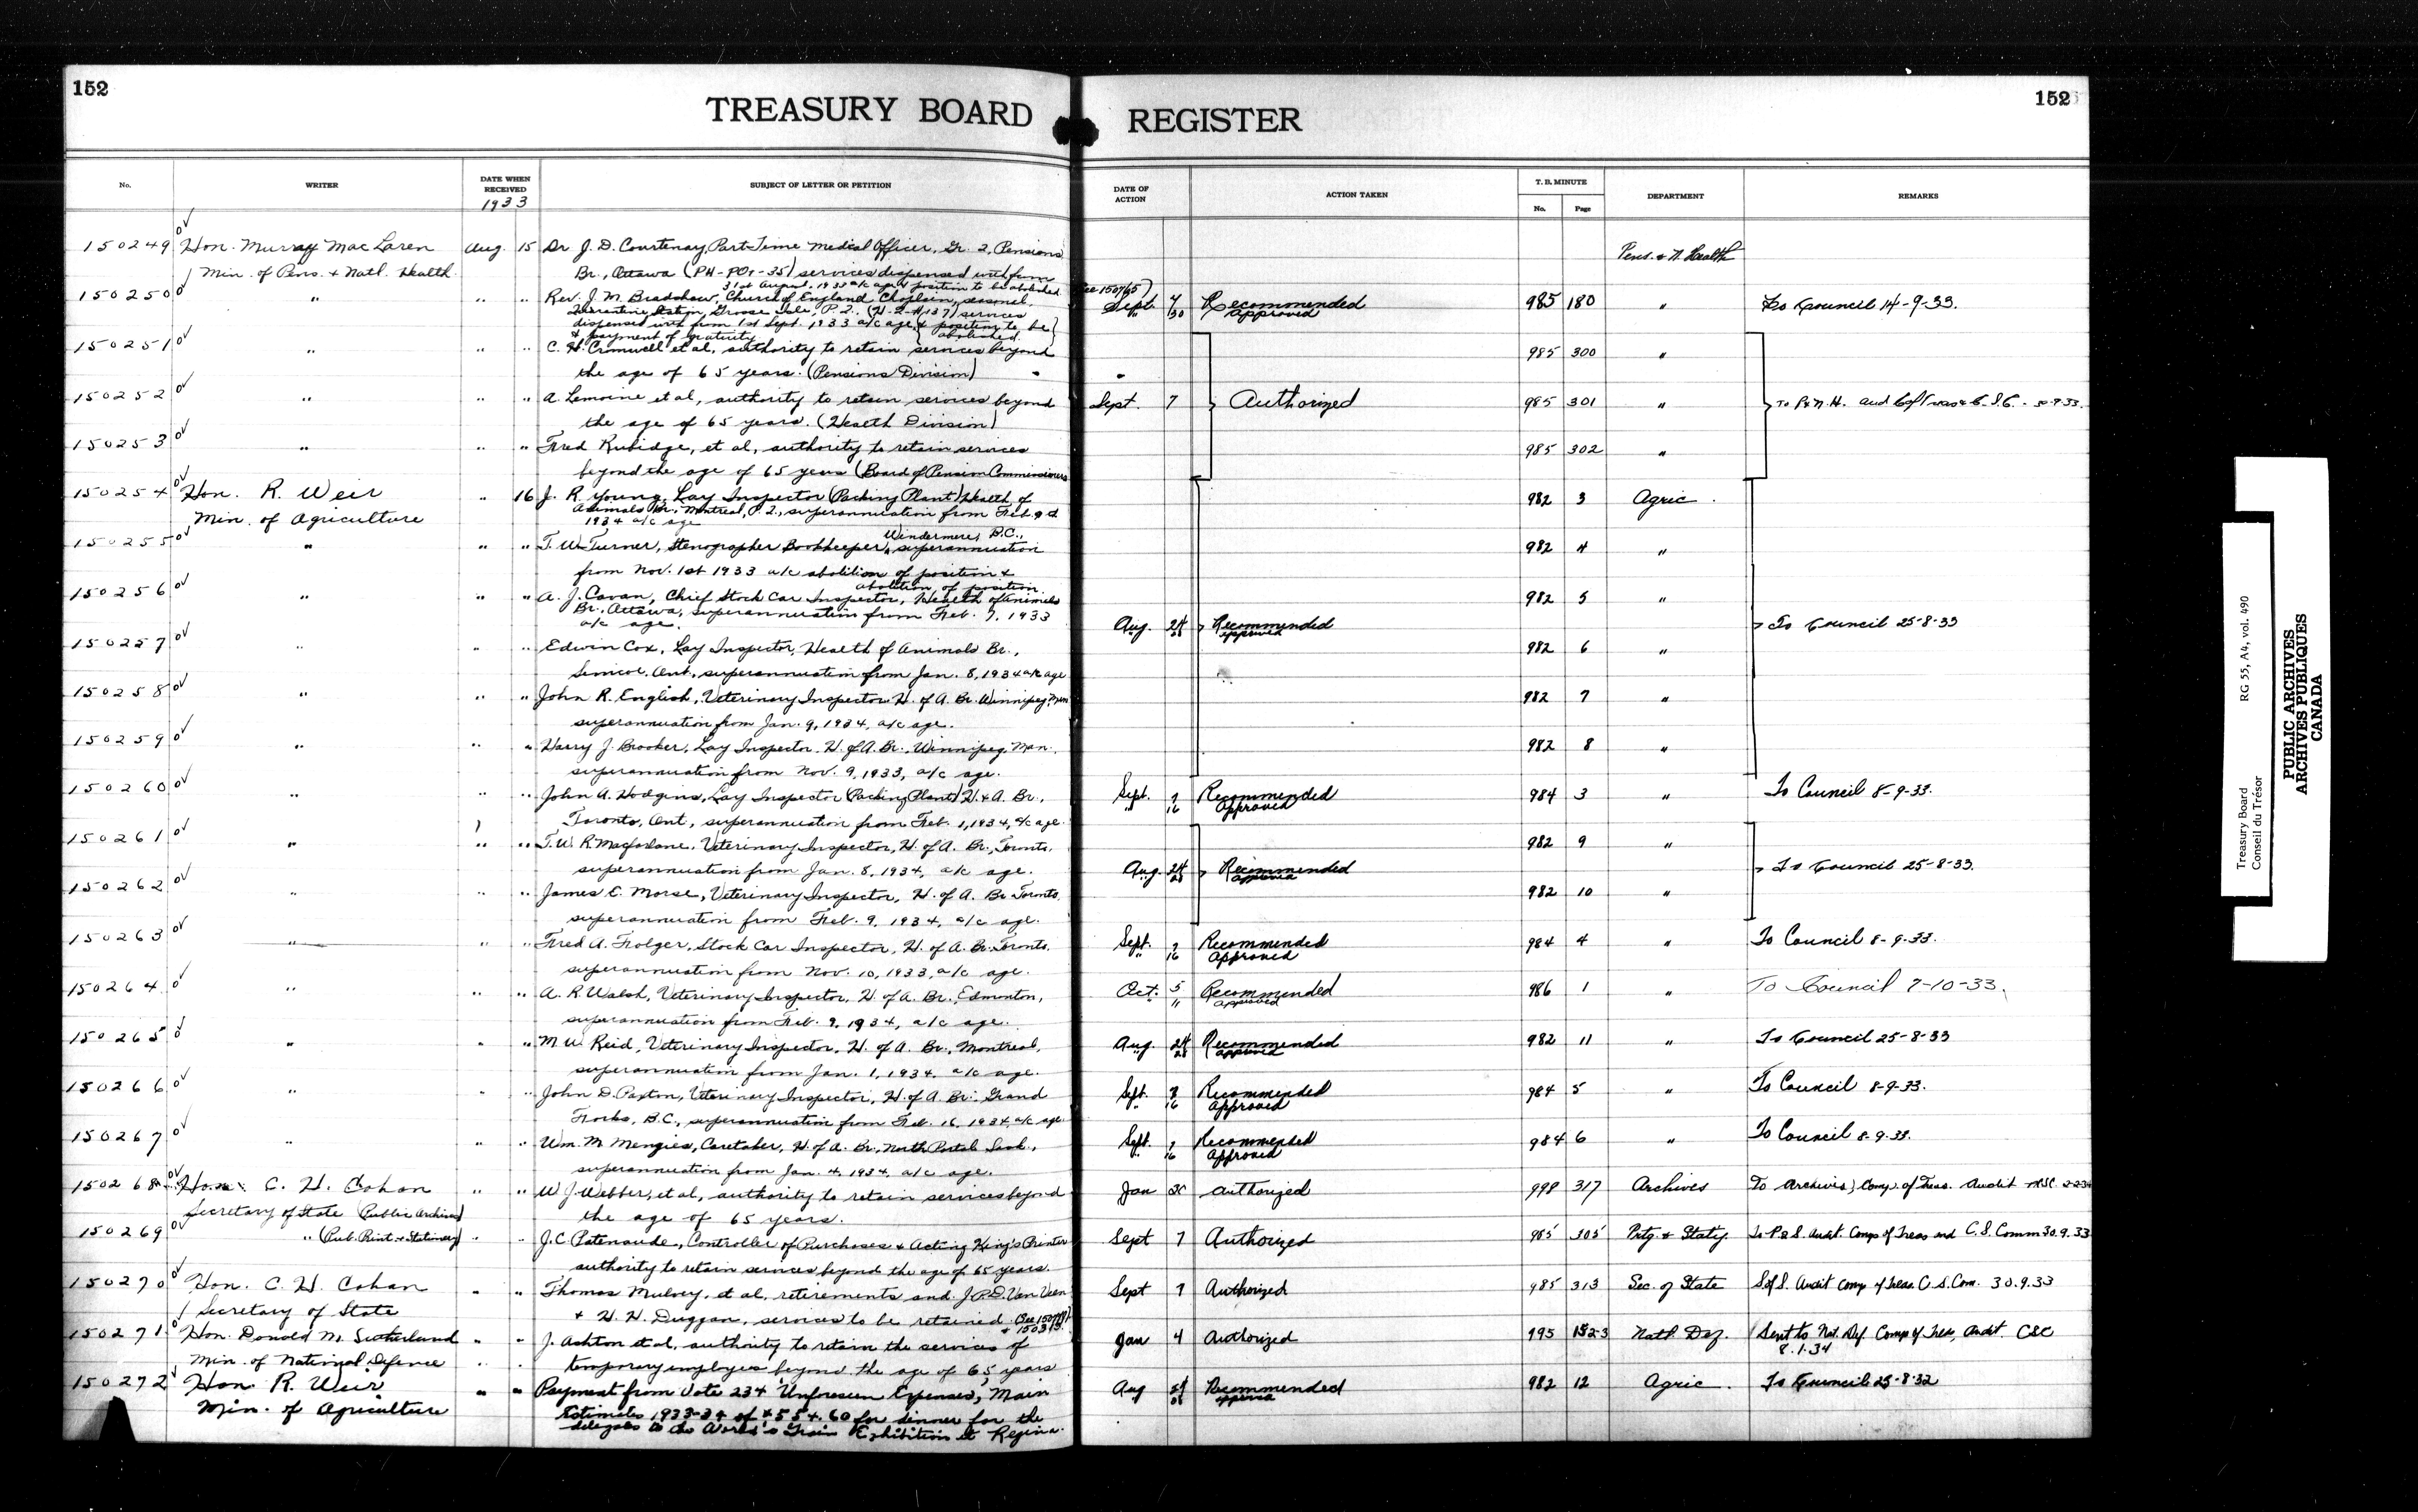 152
TREASURY BOARD REGISTER
152
No. WRITER DATE WHEN RECEIVED SUBJECT OF LETTER OR PETITION DATE OF ACTION ACTION TAKEN T. B. MINUTE No. Page DEPARTMENT REMARKS
1933
150249 Hon. Murray MacLaren Aug. 15 Dr J. D. Courtenay, Part Time Medical Officer, Gr. 2, Pensions Pens. & N. Health
Min. of Pens. & Natl. Health Br., Ottawa (PH-PO1-35) services dispensed with from
31st August, 1933 a/c age & position to be abolished
150250 " " " Rev. J. M. Bradshaw, Church of England Chaplain, seasonal Sept. 7 Recommended 985 180 " To Council 14-9-33.
Quarantine Station, Grosse Isle, P.Q., services " 30 Approved
dispensed with from 1st Sept. 1933 a/c age, & position to be
& payment of gratuity abolished.
150251 " " " C. H. Cromwell et al, authority to retain services beyond 985 300 "
the age of 65 years. (Pensions Division)
150252 " " " A. Lemoine et al, authority to retain services beyond Sept. 7 Authorized 985 301 " To P&N.H. Aud
the age of 65 years. (Health Division)
150253 " " " Fred Rubidge, et al, authority to retain services 985 302 "
beyond the age of 65 years (Board of Pension Commissioners
150254 Hon. R. Weir " 16 J. R. Young, Lay Inspector (Packing Plant) Health of 982 3 Agric.
Min. of Agriculture Animals Br., Montreal, P.Q., superannuation from Feb.
1934 a/c age
Windermere, B.C.,
150255 " " " T. W. Turner, Stenographer Bookkeeper, superannuation 982 4 "
from Nov. 1st 1933 a/c abolition of position &
abolition of position.
150256 " " " A. J. Cavan, Chief Stock Car Inspector, Health of Animals 982 5 "
Br., Ottawa, superannuation from Feb. 7, 1933
a/c age. Aug. 24 Recommended To Council 25-8-33
" 28 approved
150257 " " " Edwin Cox, Lay Inspector, Health of Animals Br., 982 6 "
Simcoe, Ont., superannuation from Jan. 8, 1934 a/c age
150258 " " " John R. English, Veterinary Inspector H. of A. Br. Winnipeg, Man 982 7 "
superannuation from Jan. 9, 1934, a/c age.
150259 " " " Harry J. Brooker, Lay Inspector, H. of A. Br., Winnipeg, Man., 982 8 "
superannuation from Nov. 9, 1933, a/c age.
150260 " " " John A. Hodgins, Lay Inspector (Packing Plant) H. & A. Br., Sept. 7 Recommended 984 3 " To Council 8-9-33.
Toronto, Ont., superannuation from Feb. 1, 1934, a/c age. " 16 Approved
150261 " " " T. W. R. Macfarlane, Veterinary Inspector, H. of A. Br., Toronto. 982 9 "
superannuation from Jan. 8, 1934, a/c age. Aug. 24 Recommended To Council 25-8-33.
" 28 approved
150262 " " " James C. Morse, Veterinary Inspector, H. of A. Br. Toronto, 982 10 "
superannuation from Feb. 9, 1934, a/c age.
150263 " " " Fred A. Folger, Stock Car Inspector, H. of A. Br. Toronto. Sept. 7 Recommended 984 4 " To Council 8-9-33.
superannuation from Nov. 10, 1933, a/c age. " 16 Approved
150264 " " " A. R. Walsh, Veterinary Inspector, H. of A. Br., Edmonton, Oct. 5 Recommended 986 1 " To Council 7-10-33.
superannuation from Feb. 9, 1934, a/c age. " 11 approved
150265 " " " M. W. Reid, Veterinary Inspector, H. of A. Br., Montreal, Aug. 24 Recommended 982 11 " To Council 25-8-33
superannuation from Jan. 1, 1934, a/c age. " 28 approved
150266 " " " John D. Paxton, Veterinary Inspector, H. of A. Br. Grand Sept. 7 Recommended 984 5 " To Council 8-9-33.
Forks, B.C., superannuation from Feb. 16, 1934, a/c age. " 16 Approved
150267 " " " Wm. M. Menzies, Caretaker, H. of A. Br., North Portal Sask., Sept. 7 Recommended 984 6 " To Council 8-9-33.
superannuation from Jan. 4, 1934, a/c age. " 16 Approved
150268 Hon. C. H. Cahan " " W. J. Webber, et al, authority to retain services beyond Jan Authorized 998 317 Archives To Archives, Comp. of Treas. Audit
Secretary of State (Public Archives) the age of 65 years.
150269 " (Pub. Print. & Stationery) " " J. C. Patenaude, Controller of Purchases & Acting King's Printer Sept 7 Authorized 985 305 Ptg. & Staty. To P&S. Audit. Comp of Treas and C. S. Comm 30.9.33
authority to retain services beyond the age of 65 years.
150270 Hon. C. H. Cahan " " Thomas Mulvey, et al, retirements and J. P. D. Van Veen Sept 7 Authorized 985 313 Sec. of State S of S. Audit Comp of Treas. C. S. Com. 30.9.33
Secretary of State & H. H. Duggan, services to be retained.
150271 Hon. Donald M. Sutherland " " J. Ashton et al, authority to retain the services of Jan 4 Authorized 995 152-3 Natl. Def. Sent to Nat. Def. Comp of Treas, Audit. CSC
Min. of National Defence temporary employees beyond the age of 65 years 8.1.34
150272 Hon. R. Weir " " Payment from Vote 234 "Unforeseen Expenses", Main Aug 24 Recommended 982 12 Agric. To Council 25-8-33
Min. of Agriculture Estimates 1933-34 of $554.60 for dinner for the " 28 approved
delegates to the World's Grain Exhibition at Regina.
Treasury Board RG 55, A4, vol. 490
Conseil du Trésor
PUBLIC ARCHIVES
ARCHIVES PUBLIQUES
CANADA